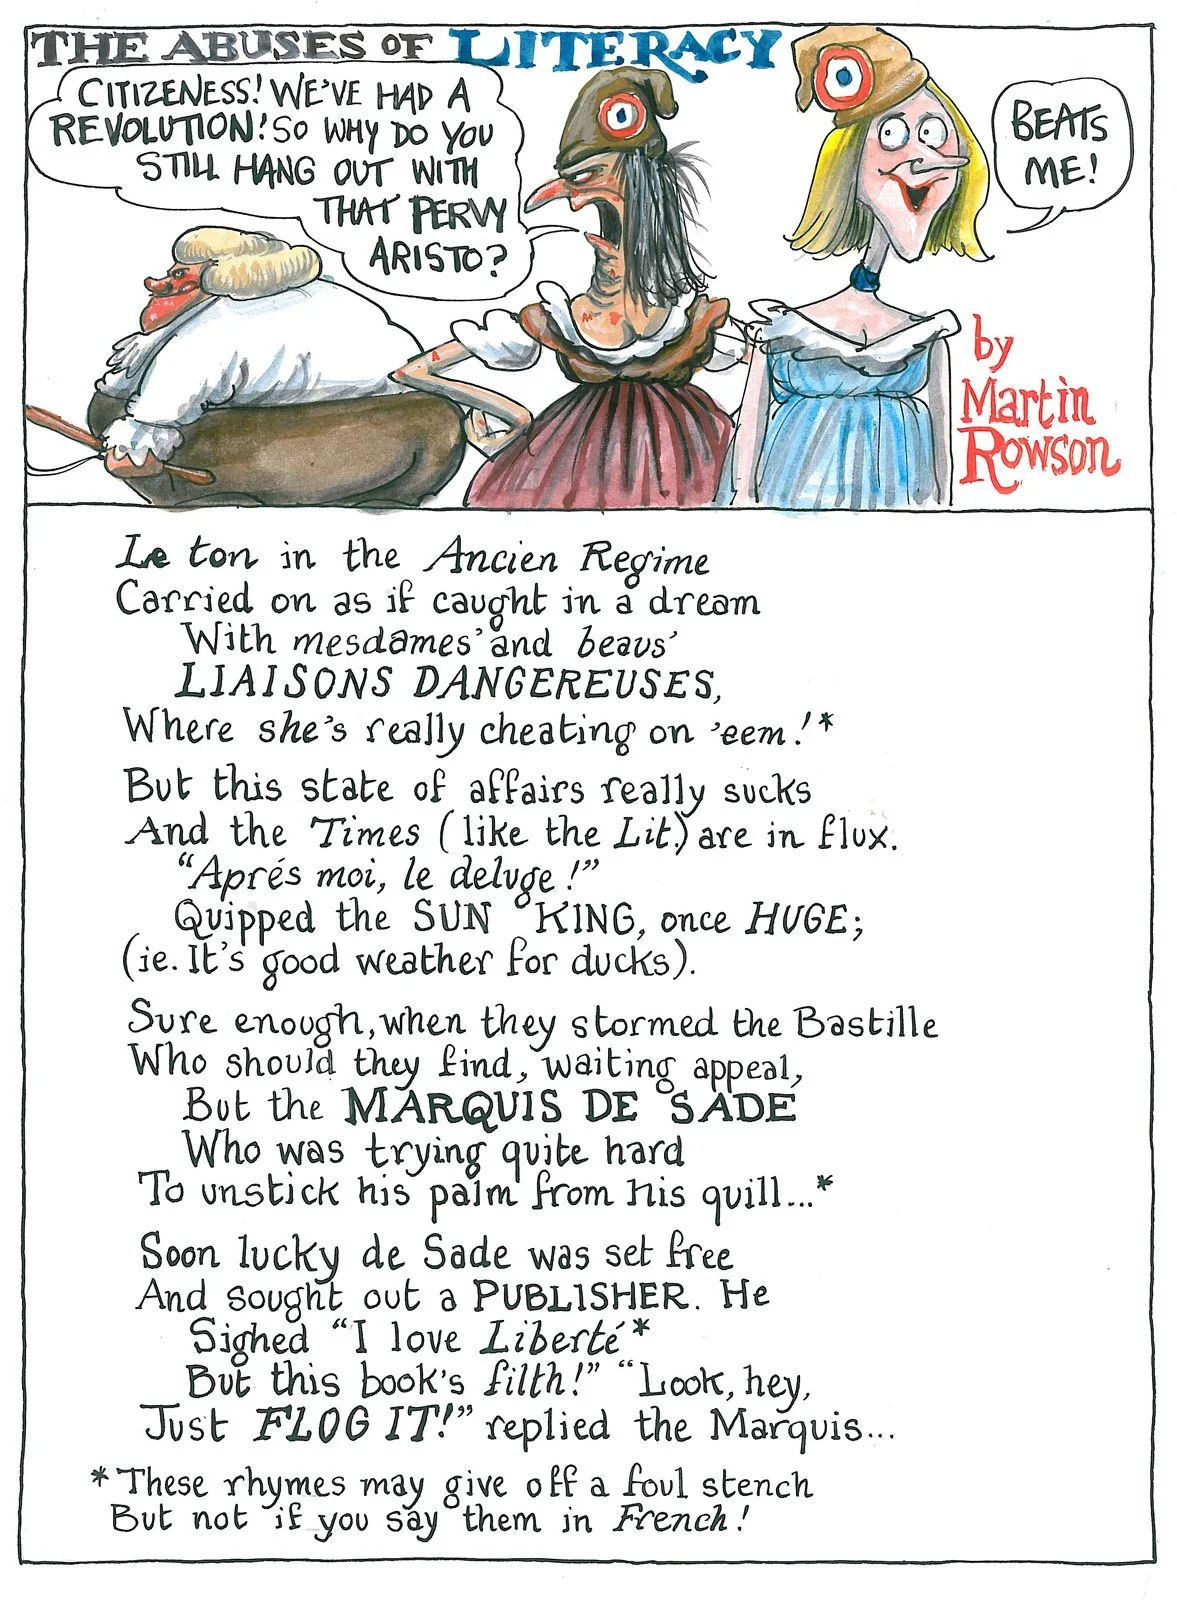 THE ABUSES OF LITERACY
CITIZENESS! WE'VE HAD A
REVOLUTION! SO WHY DO YOU
STILL HANG OUT WITH
THAT PERVY
ARISTO?
BEATS
ME!
by
Martin
Rowson
Le ton in the Ancien Regime
Carried on as if caught in a dream
With mesdames' and beaus'
LIAISONS DANGEREUSES,
Where she's really cheating on 'eem!*
But this state of affairs really sucks
And the Times (like the Lit.) are in flux.
"Aprés moi, le deluge!"
Quipped the SUN KING, once HUGE;
(ie. It's good weather for ducks).
Sure enough, when they stormed the Bastille
Who should they find, waiting appeal,
But the MARQUIS DE SADE
Who was trying quite hard
To unstick his palm from his quill...*
Soon lucky de Sade was set free
And sought out a PUBLISHER. He
Sighed "I love Liberté*
But this book's filth!" "Look, hey,
Just FLOG IT!" replied the Marquis...
*These rhymes may give off a foul stench
But not if you say them in French!